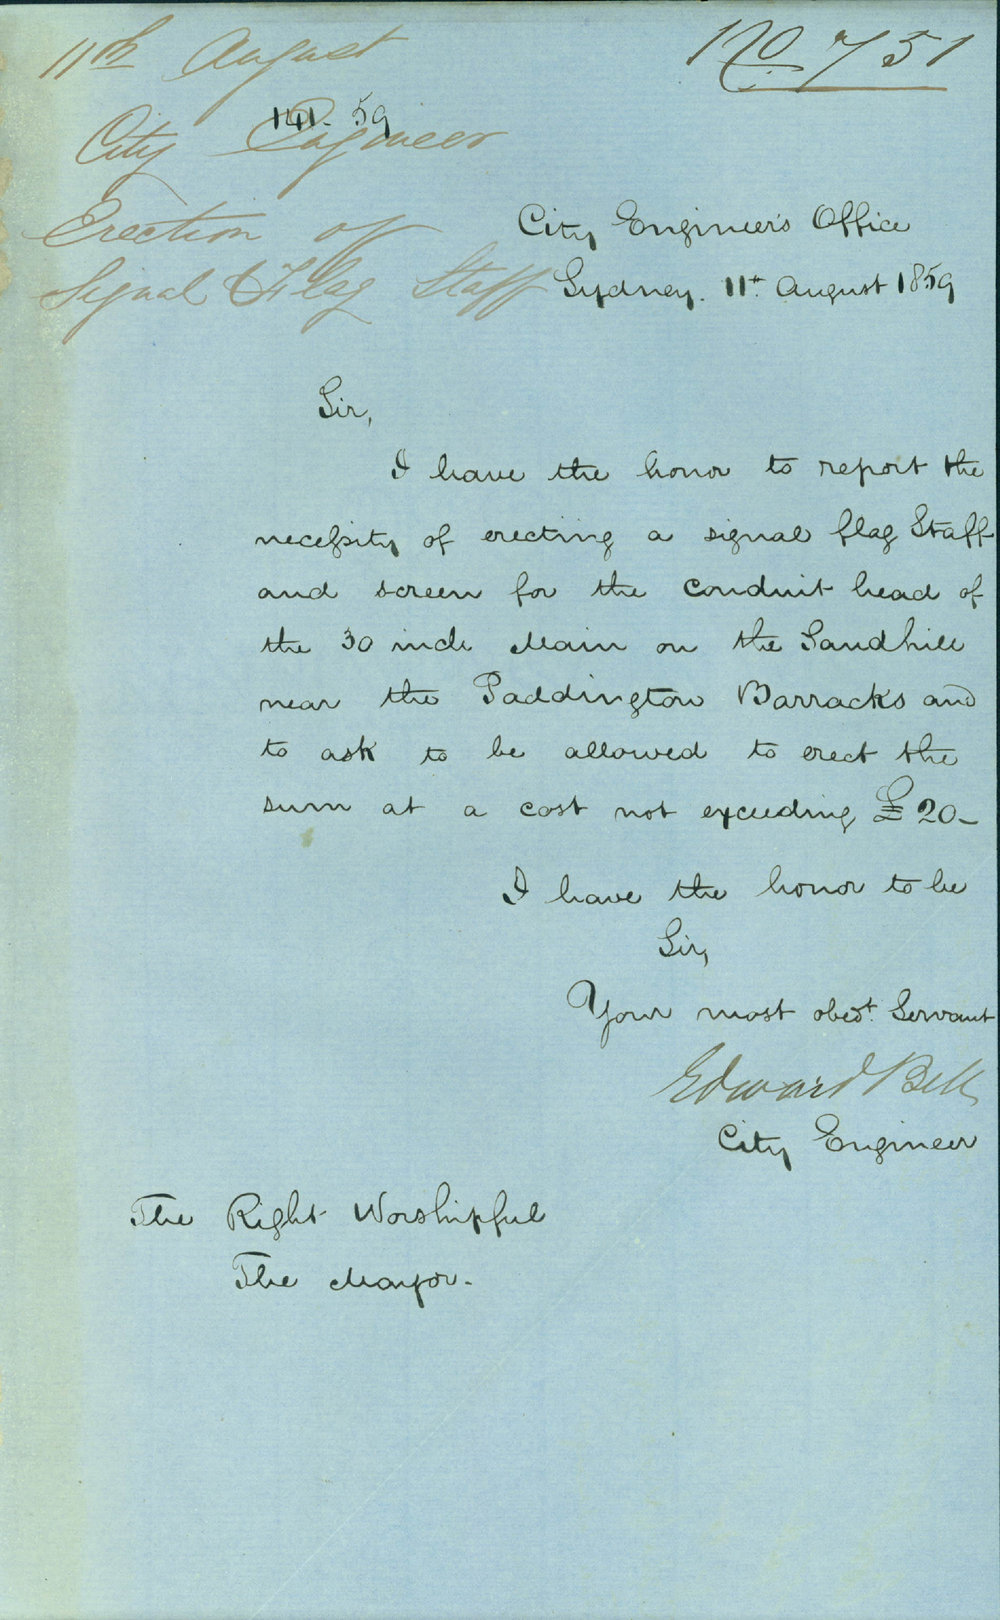 11th August
No. 751
141. 59
City Engineer
Erection of
Signal & Flag Staff
City Engineer's Office
Sydney. 11th August 1859
Sir,
I have the honor to report the
necessity of erecting a signal flag Staff
and screen for the conduit head of
the 30 inch Main on the Sandhill
near the Paddington Barracks and
to ask to be allowed to erect the
sum at a cost not exceeding £20-
I have the honor to be
Sir,
Your most obedt. Servant
Edward Bell
City Engineer
The Right Worshipful
The Mayor-